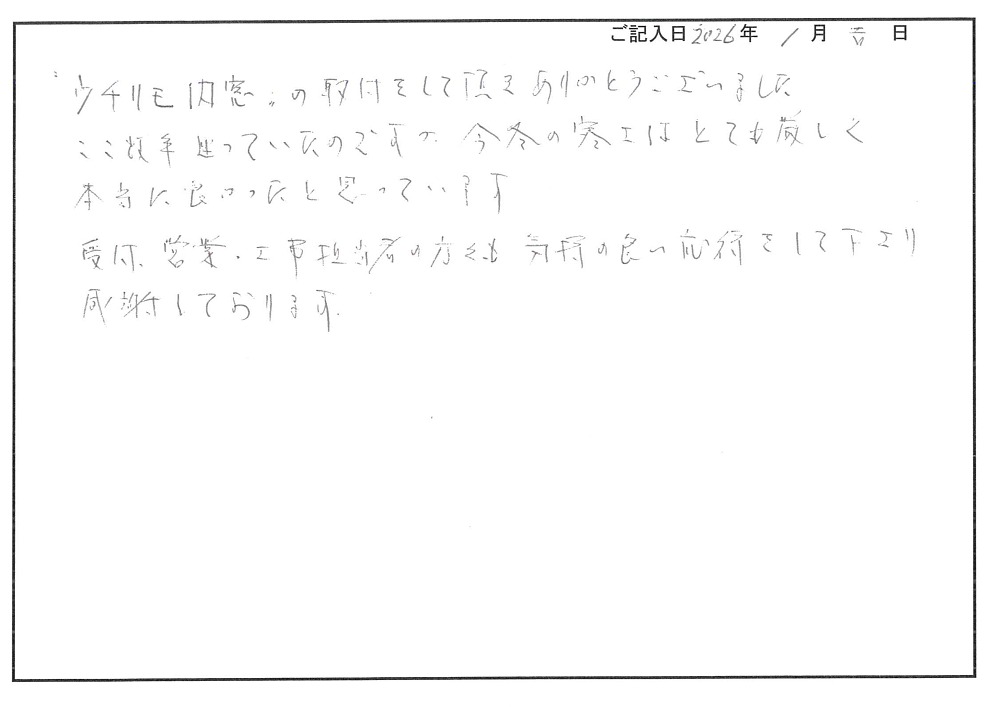 ご記入日 2026年 1月 吉日
"ウチリモ内窓"の取付をして頂きありがとうございました
ここ数年迷っていたのですが 今冬の寒さはとても厳しく
本当に良かったと思っています
受付、営業・工事担当者の方々も 気持の良い応待をして下さり
感謝しております。